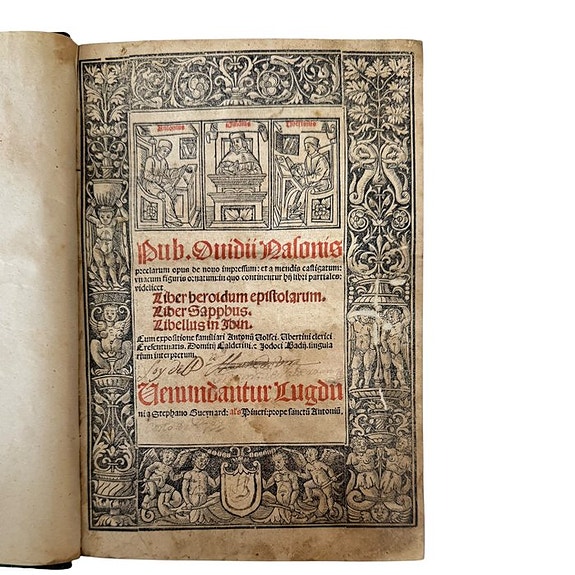 Antonius Ouidius
Pub. Ouidii Nasonis
preclarum opus de nouo impressum: et a mendis castigatum:
vnacum figuris ornatum: in quo continentur hij libri partiales:
videlicet
Liber heroidum epistolarum.
Liber Sapphus.
Libellus in Ibin.
Cum expositione familiari Antonij Volsci. Vbertini clerici
Cresentinatis. Domitij Calderini. & Jodoci Badij. singula
rium interpretum.
Venundantur Lugdu
ni a Stephano Gueynard: als Pineti: prope sanctū Antoniū.